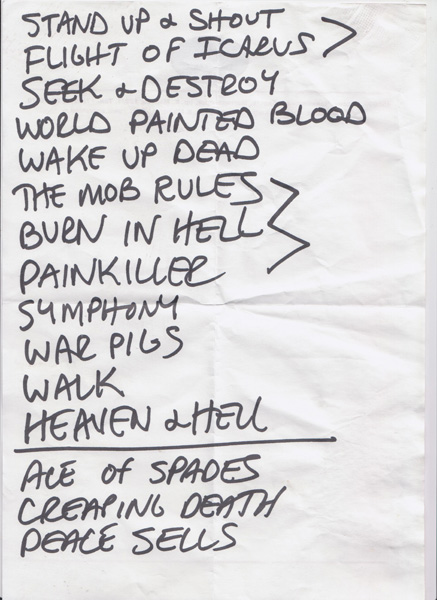 STAND UP & SHOUT
FLIGHT OF ICARUS
SEEK & DESTROY
WORLD PAINTED BLOOD
WAKE UP DEAD
THE MOB RULES
BURN IN HELL
PAINKILLER
SYMPHONY
WAR PIGS
WALK
HEAVEN & HELL
ACE OF SPADES
CREAPING DEATH
PEACE SELLS